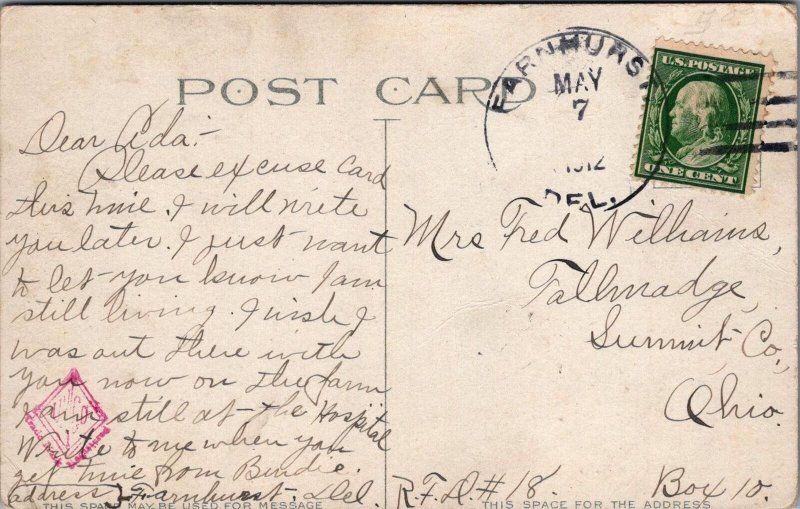 POST CARD
FARNHURST
MAY
7
1912
DEL.
U.S. POSTAGE
ONE CENT
Dear Ada:-
Please excuse card
this time. I will write
you later. I just want
to let you know I am
still living. I wish I
was out there with
you now on the farm
I am still at the Hospital
Write to me when you
get time from Birdie.
address Farnhurst. Del.
THIS SPACE MAY BE USED FOR MESSAGE
Mrs Fred Williams,
Tallmadge,
Summit Co.,
Ohio.
R.F.D. # 18. Box 10.
THIS SPACE FOR THE ADDRESS